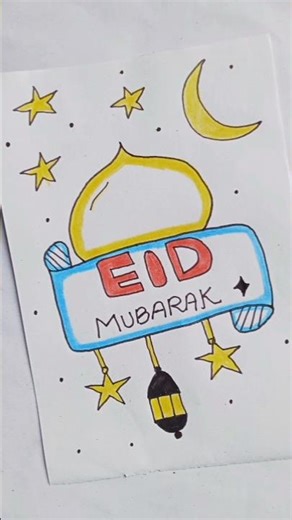 EID
MUBARAK